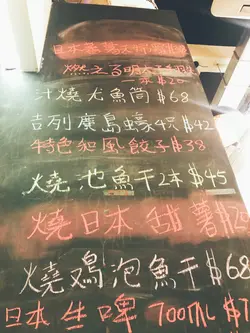 日本
燃之る明太子
一本$20
汁燒尤魚筒$68
吉列廣島蠔4只$42
特色和風餃子$38
燒池魚干2本$45
燒日本甜薯
燒鷄泡魚干$68
日本生啤700ML$